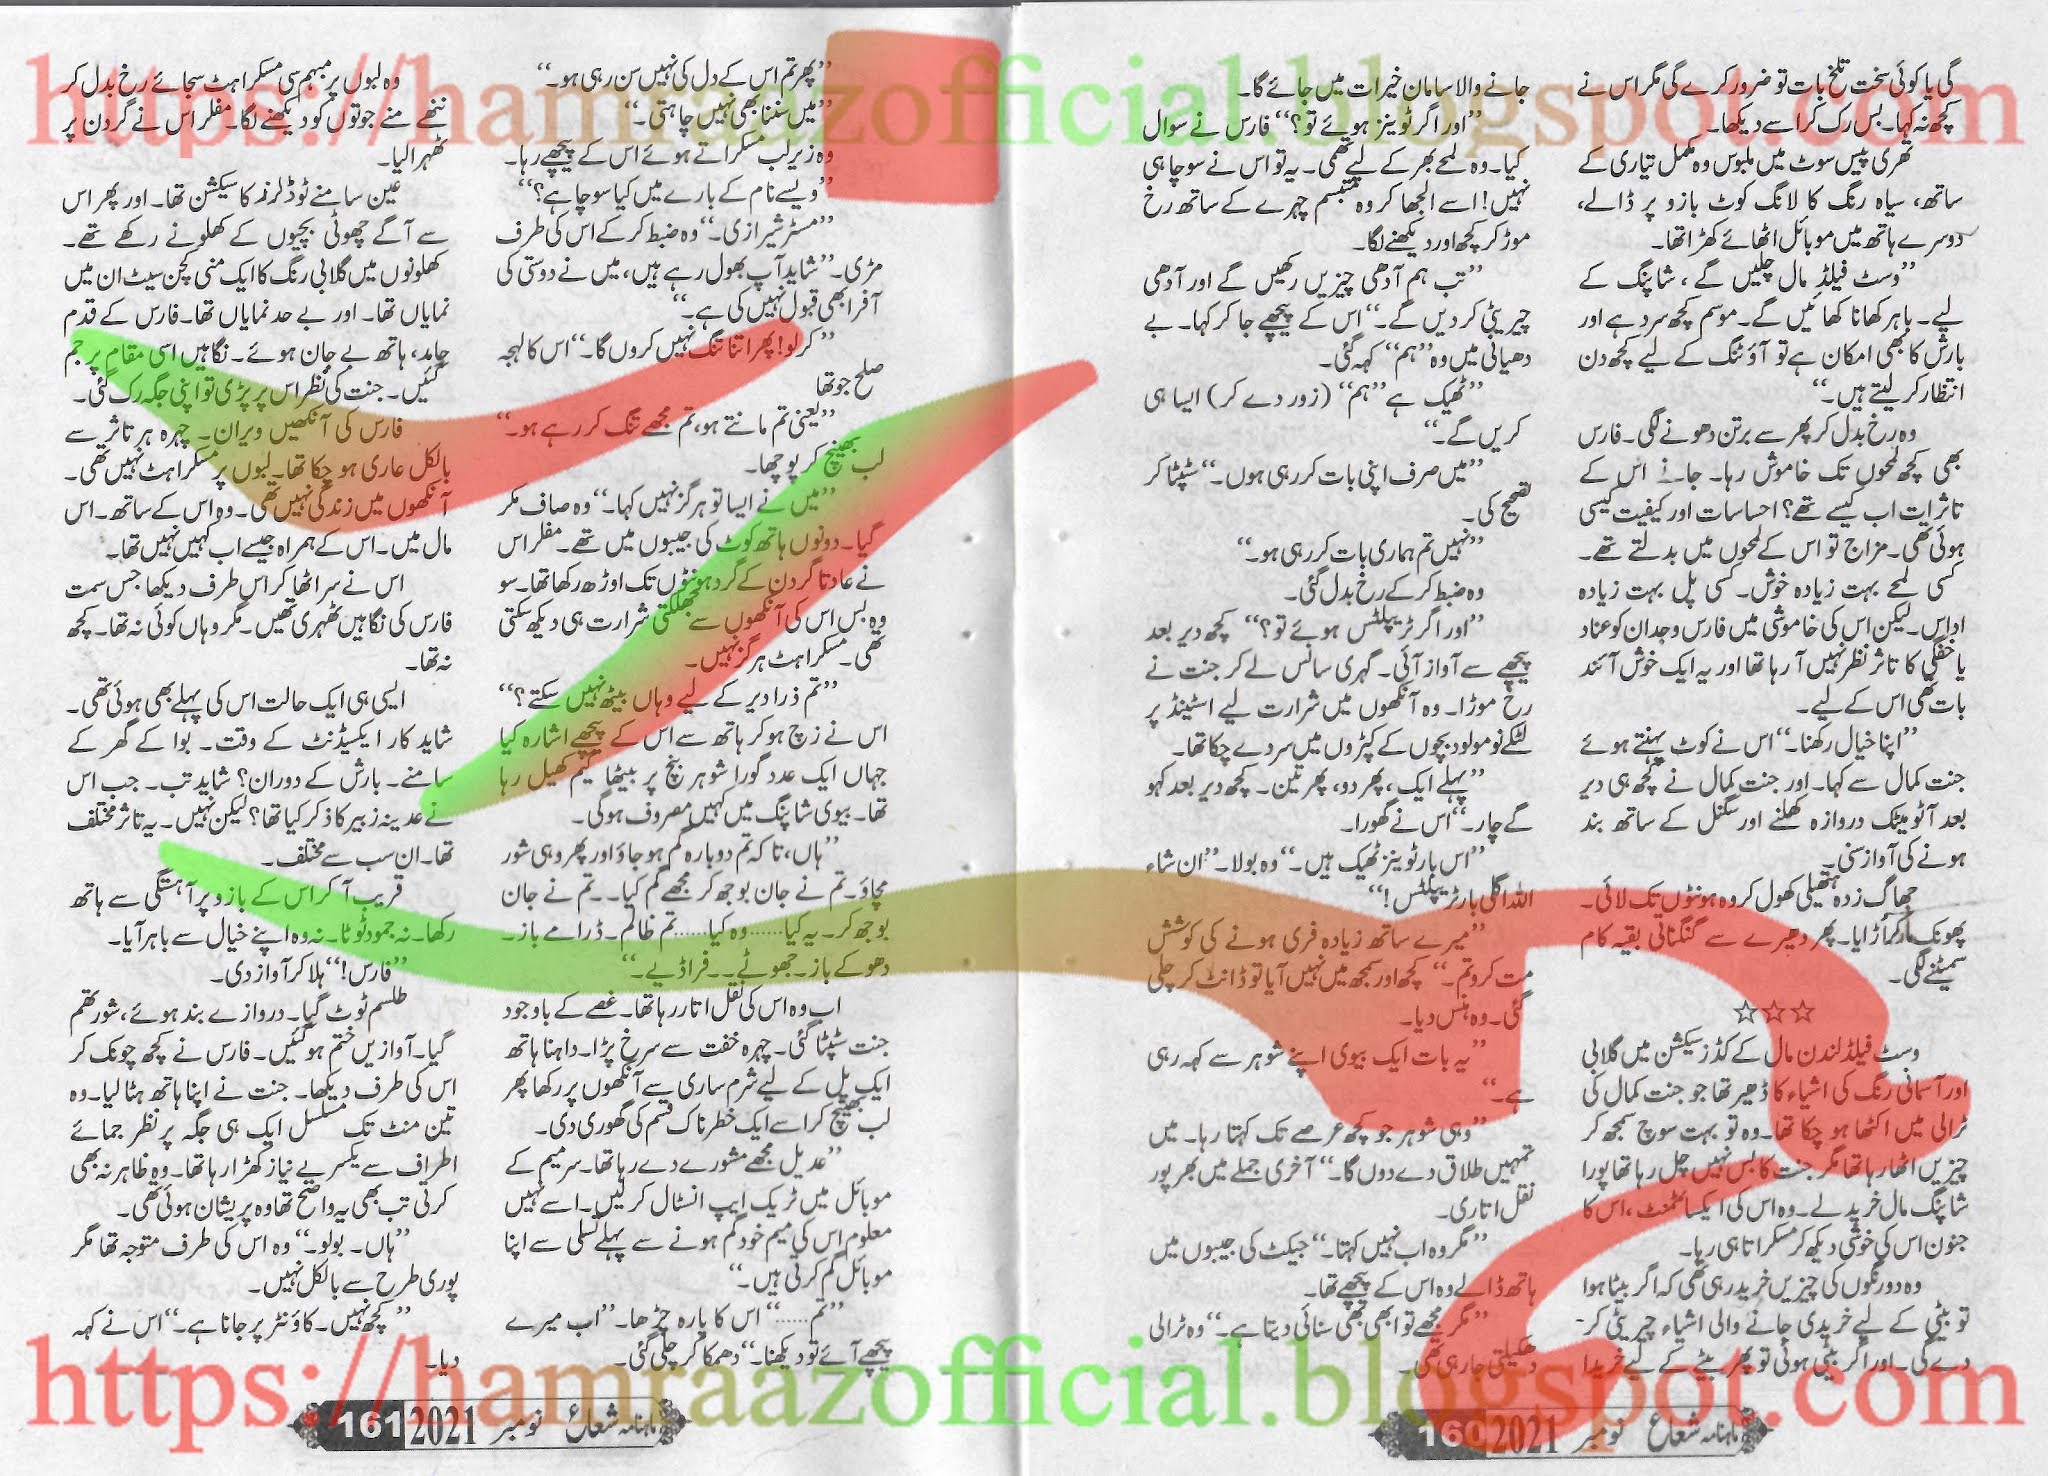 گی یا کوئی سخت تلخ بات تو ضرور کرے گی مگر اس نے
کچھ نہ کہا۔ بس رک کر اسے دیکھا۔
تھری پیس سوٹ میں ملبوس وہ مکمل تیاری کے
ساتھ، سیاہ رنگ کا لانگ کوٹ بازو پر ڈالے،
دوسرے ہاتھ میں موبائل اٹھائے کھڑا تھا۔
’’وسٹ فیلڈ مال چلیں گے، شاپنگ کے
لیے۔ باہر کھانا کھائیں گے۔ موسم کچھ سرد ہے اور
بارش کا بھی امکان ہے تو آؤٹنگ کے لیے کچھ دن
انتظار کر لیتے ہیں۔‘‘
وہ رخ بدل کر پھر سے برتن دھونے لگی۔ فارس
بھی کچھ لمحوں تک خاموش رہا۔ جانے اس کے
تاثرات اب کیسے تھے؟ احساسات اور کیفیت کیسی
ہوئی تھی۔ مزاج تو اس کے لمحوں میں بدلتے تھے۔
کسی لمحے بہت زیادہ خوش۔ کسی پل بہت زیادہ
اداس۔ لیکن اس کی خاموشی میں فارس وجدان کو عناد
یا خفگی کا تاثر نظر نہیں آ رہا تھا اور یہ ایک خوش آئند
بات تھی اس کے لیے۔
’’اپنا خیال رکھنا۔‘‘ اس نے کوٹ پہنتے ہوئے
جنت کمال سے کہا۔ اور جنت کمال نے کچھ ہی دیر
بعد آٹو میٹک دروازہ کھلنے اور سگنل کے ساتھ بند
ہونے کی آواز سنی۔
جھاگ زدہ ہتھیلی کھول کر وہ ہونٹوں تک لائی۔
پھونک مار کر اڑایا۔ پھر دھیرے سے گنگناتی بقیہ کام
سمیٹنے لگی۔
☆☆☆
وسٹ فیلڈ لندن مال کے کڈز سیکشن میں گلابی
اور آسمانی رنگ کی اشیاء کا ڈھیر تھا جو جنت کمال کی
ٹرالی میں اکٹھا ہو چکا تھا۔ وہ تو بہت سوچ سمجھ کر
چیزیں اٹھا رہا تھا مگر جنت کا بس نہیں چل رہا تھا پورا
شاپنگ مال خرید لے۔ وہ اس کی ایکسائٹمنٹ، اس کا
جنون اس کی خوشی دیکھ کر مسکراتا ہی رہا۔
وہ دو رنگوں کی چیزیں خرید رہی تھی کہ اگر بیٹا ہوا
تو بیٹی کے لیے خریدی جانے والی اشیاء چیریٹی کر
دے گی۔ اور اگر بیٹی ہوئی تو پھر بیٹے کے لیے خریدا
جانے والا سامان خیرات میں جائے گا۔
’’اور اگر ٹوینز ہوئے تو؟‘‘ فارس نے سوال
کیا۔ وہ لمحے بھر کے لیے تھمی۔ یہ تو اس نے سوچا ہی
نہیں! اسے الجھا کر وہ متبسم چہرے کے ساتھ رخ
موڑ کر کچھ اور دیکھنے لگا۔
’’تب ہم آدھی چیزیں رکھیں گے اور آدھی
چیریٹی کر دیں گے۔‘‘ اس کے پیچھے جا کر کہا۔ بے
دھیانی میں وہ ’’ہم‘‘ کہہ گئی۔
’’ٹھیک ہے ’’ہم‘‘ (زور دے کر) ایسا ہی
کریں گے۔‘‘
’’میں صرف اپنی بات کر رہی ہوں۔‘‘ سٹپٹا کر
تصحیح کی۔
’’نہیں تم ہماری بات کر رہی ہو۔‘‘
وہ ضبط کر کے رخ بدل گئی۔
’’اور اگر ٹرپلٹس ہوئے تو؟‘‘ کچھ دیر بعد
پیچھے سے آواز آئی۔ گہری سانس لے کر جنت نے
رخ موڑا۔ وہ آنکھوں میں شرارت لیے اسٹینڈ پر
لٹکے نومولود بچوں کے کپڑوں میں سر دے چکا تھا۔
’’پہلے ایک، پھر دو، پھر تین۔ کچھ دیر بعد کہو
گے چار۔‘‘ اس نے گھورا۔
’’اس بار ٹوینز ٹھیک ہیں۔‘‘ وہ بولا۔ ’’ان شاء
اللہ اگلی بار ٹرپلٹس!‘‘
’’میرے ساتھ زیادہ فری ہونے کی کوشش
مت کرو تم۔‘‘ کچھ اور سمجھ میں نہیں آیا تو ڈانٹ کر چلی
گئی۔ وہ ہنس دیا۔
’’یہ بات ایک بیوی اپنے شوہر سے کہہ رہی
ہے۔‘‘
’’وہی شوہر جو کچھ عرصے تک کہتا رہا۔ میں
تمہیں طلاق دے دوں گا۔‘‘ آخری جملے میں بھرپور
نقل اتاری۔
’’مگر وہ اب نہیں کہتا۔‘‘ جیکٹ کی جیبوں میں
ہاتھ ڈالے وہ اس کے پیچھے تھا۔
’’مگر مجھے تو ابھی بھی سنائی دیتا ہے۔‘‘ وہ ٹرالی
دھکیلتی جا رہی تھی۔
ماہنامہ شعاع نومبر 2021 160
’’پھر تم اس کے دل کی نہیں سن رہی ہو۔‘‘
’’میں سننا بھی نہیں چاہتی۔‘‘
وہ زیر لب مسکراتے ہوئے اس کے پیچھے رہا۔
’’ویسے نام کے بارے میں کیا سوچا ہے؟‘‘
’’مسٹر شیرازی۔‘‘ وہ ضبط کر کے اس کی طرف
مڑی۔ ’’شاید آپ بھول رہے ہیں، میں نے دوستی کی
آفر ابھی قبول نہیں کی ہے۔‘‘
’’کر لو! پھر اتنا تنگ نہیں کروں گا۔‘‘ اس کا لہجہ
صلح جو تھا
’’یعنی تم مانتے ہو، تم مجھے تنگ کر رہے ہو۔‘‘
لب بھینچ کر پوچھا۔
’’میں نے ایسا تو ہرگز نہیں کہا۔‘‘ وہ صاف مکر
گیا۔ دونوں ہاتھ کوٹ کی جیبوں میں تھے۔ مفلر اس
نے عادتاً گردن کے گرد ہونٹوں تک اوڑھ رکھا تھا۔ سو
وہ بس اس کی آنکھوں سے جھلکتی شرارت ہی دیکھ سکتی
تھی۔ مسکراہٹ ہرگز نہیں۔
’’تم ذرا دیر کے لیے وہاں بیٹھ نہیں سکتے؟‘‘
اس نے زچ ہو کر ہاتھ سے اس کے پیچھے اشارہ کیا
جہاں ایک عدد گورا شوہر بنچ پر بیٹھا گیم کھیل رہا
تھا۔ بیوی شاپنگ میں کہیں مصروف ہوگی۔
’’ہاں، تا کہ تم دوبارہ گم ہو جاؤ اور پھر وہی شور
مچاؤ۔ تم نے جان بوجھ کر مجھے گم کیا۔۔ تم نے جان
بوجھ کر۔ یہ کیا...... وہ کیا...... تم ظالم۔ ڈرامے باز۔
دھوکے باز۔ جھوٹے۔۔ فراڈیے۔‘‘
اب وہ اس کی نقل اتار رہا تھا۔ غصے کے باوجود
جنت سٹپٹا گئی۔ چہرہ خفت سے سرخ پڑا۔ داہنا ہاتھ
ایک پل کے لیے شرم ساری سے آنکھوں پر رکھا پھر
لب بھینچ کر اسے ایک خطرناک قسم کی گھوری دی۔
’’عدیل مجھے مشورے دے رہا تھا۔ سر میم کے
موبائل میں ٹریک ایپ انسٹال کر لیں۔ اسے نہیں
معلوم اس کی میم خود گم ہونے سے پہلے تسلی سے اپنا
موبائل گم کرتی ہیں۔‘‘
’’تم......‘‘ اس کا پارہ چڑھا۔ ’’اب میرے
پیچھے آئے تو دیکھنا۔‘‘ دھمکا کر چلی گئی۔
وہ لبوں پر مبہم سی مسکراہٹ سجائے رخ بدل کر
ننھے منے جوتوں کو دیکھنے لگا۔ مفلر اس نے گردن پر
ٹھہرا لیا۔
عین سامنے ٹوڈلرز کا سیکشن تھا۔ اور پھر اس
سے آگے چھوٹی بچیوں کے کھلونے رکھے تھے۔
کھلونوں میں گلابی رنگ کا ایک منی کچن سیٹ ان میں
نمایاں تھا۔ اور بے حد نمایاں تھا۔ فارس کے قدم
جامد، ہاتھ بے جان ہوئے۔ نگاہیں اسی مقام پر جم
گئیں۔ جنت کی نظر اس پر پڑی تو اپنی جگہ رک گئی۔
فارس کی آنکھیں ویران۔ چہرہ ہر تاثر سے
بالکل عاری ہو چکا تھا۔ لبوں پر مسکراہٹ نہیں تھی۔
آنکھوں میں زندگی نہیں تھی۔ وہ اس کے ساتھ۔ اس
مال میں۔ اس کے ہمراہ جیسے اب کہیں نہیں تھا۔
اس نے سر اٹھا کر اس طرف دیکھا جس سمت
فارس کی نگاہیں ٹھہری تھیں۔ مگر وہاں کوئی نہ تھا۔ کچھ
نہ تھا۔
ایسی ہی ایک حالت اس کی پہلے بھی ہوئی تھی۔
شاید کار ایکسیڈنٹ کے وقت۔ بوا کے گھر کے
سامنے۔ بارش کے دوران؟ شاید تب۔ جب اس
نے عدینہ زبیر کا ذکر کیا تھا؟ لیکن نہیں۔ یہ تاثر مختلف
تھا۔ ان سب سے مختلف۔
قریب آ کر اس کے بازو پر آہستگی سے ہاتھ
رکھا۔ نہ جمود ٹوٹا۔ نہ وہ اپنے خیال سے باہر آیا۔
’’فارس!‘‘ ہلا کر آواز دی۔
طلسم ٹوٹ گیا۔ دروازے بند ہوئے، شور تھم
گیا۔ آوازیں ختم ہو گئیں۔ فارس نے کچھ چونک کر
اس کی طرف دیکھا۔ جنت نے اپنا ہاتھ ہٹا لیا۔ وہ
تین منٹ تک مسلسل ایک ہی جگہ پر نظر جمائے
اطراف سے یکسر بے نیاز کھڑا رہا تھا۔ وہ ظاہر نہ بھی
کرتی تب بھی یہ واضح تھا وہ پریشان ہوئی تھی۔
’’ہاں۔ بولو۔‘‘ وہ اس کی طرف متوجہ تھا مگر
پوری طرح سے بالکل نہیں۔
’’کچھ نہیں۔ کاؤنٹر پر جانا ہے۔‘‘ اس نے کہہ
دیا۔
ماہنامہ شعاع نومبر 2021 161
https://hamraazofficial.blogspot.com
https://hamraazofficial.blogspot.com